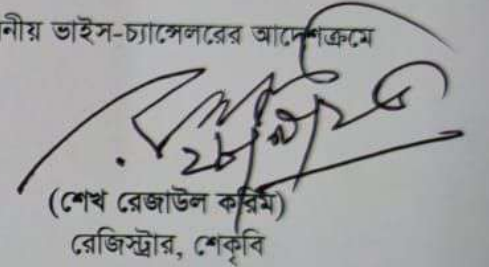 নীয় ভাইস-চ্যান্সেলরের আদেশক্রমে
(শেখ রেজাউল করিম)
রেজিস্ট্রার, শেকৃবি